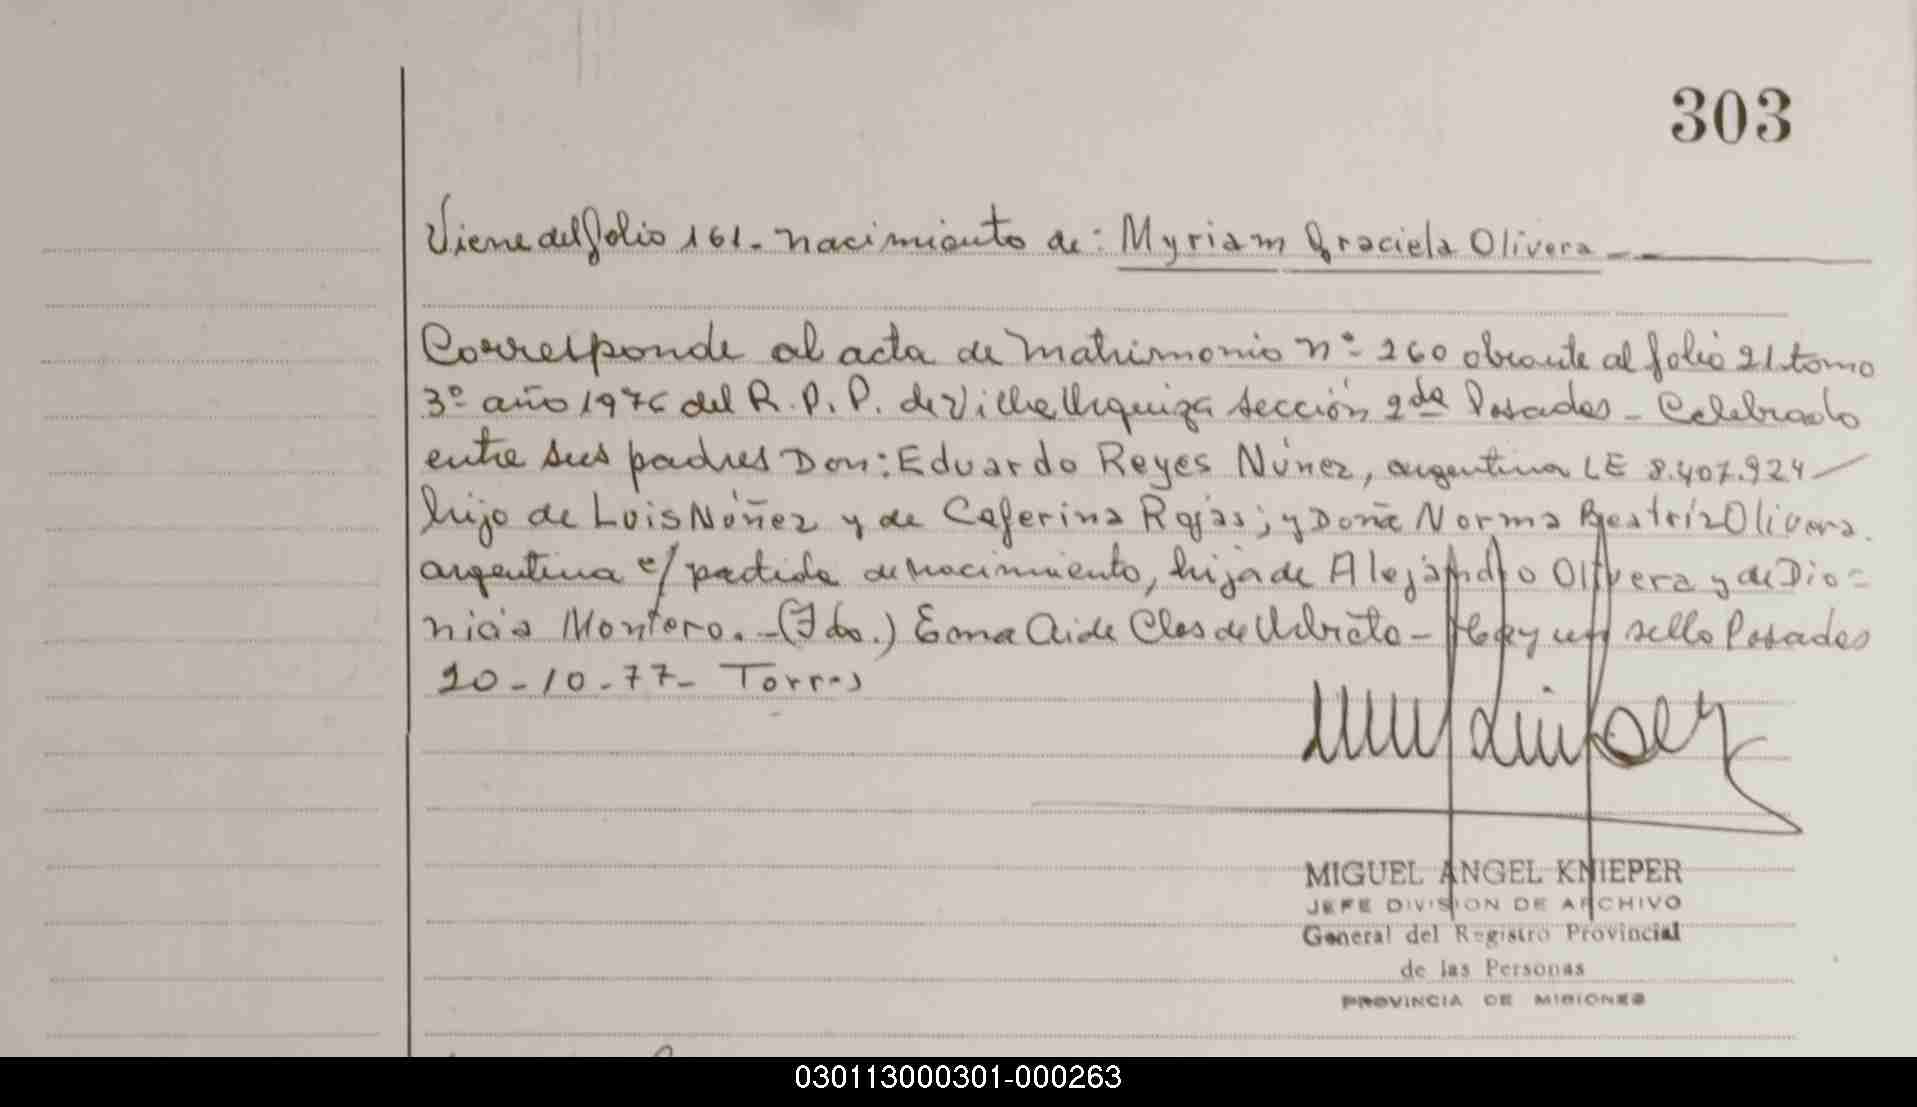 303
Viene del folio 161. nacimiento de: Myriam Graciela Olivera
Corresponde al acta de Matrimonio nº 260 obrante al folio 21 tomo
3º año 1976 del R. P. P. de Villa Urquiza sección 2da Posadas - Celebrado
entre sus padres Don: Eduardo Reyes Núnez, argentina LE 8.407.924
hijo de Luis Núñez y de Ceferina Rojas; y Doña Norma Beatríz Olivera.
argentina c/ partida de nacimiento, hija de Alejandro Olivera y de Dio=
nicia Montero. - (Fdo.) Ema Aide Clos de - Hay un sello Posadas
20-10-77- Torres
MIGUEL ANGEL KNIEPER
JEFE DIVISION DE ARCHIVO
General del Registro Provincial
de las Personas
PROVINCIA DE MISIONES
030113000301-000263